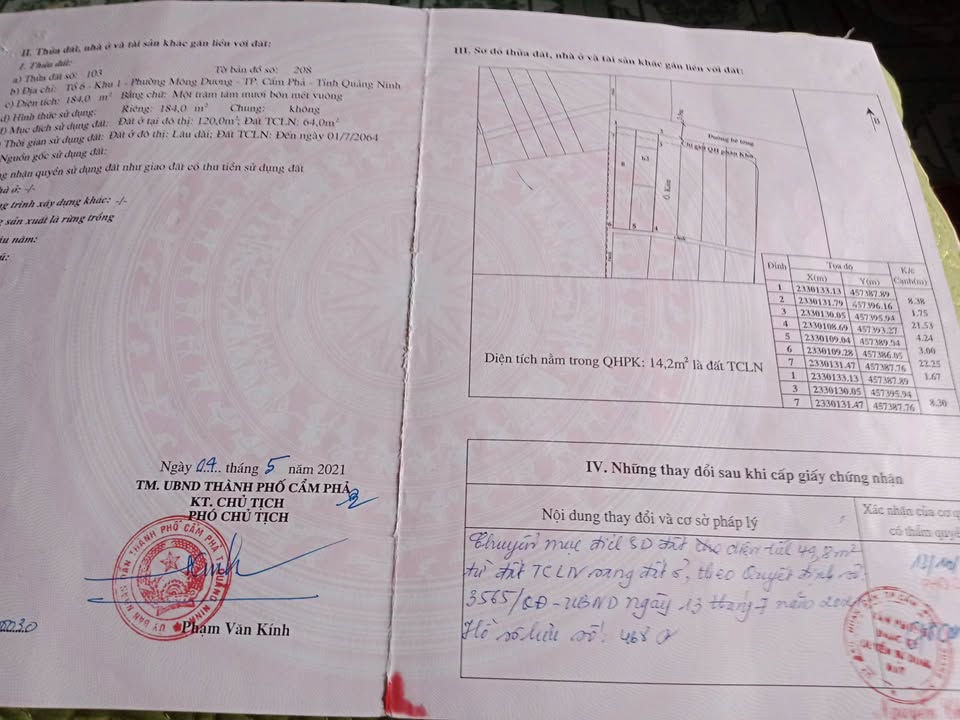 II. Thửa đất, nhà ở và tài sản khác gắn liền với đất:
1. Thửa đất:
a) Thửa đất số: 103 Tờ bản đồ số: 208
b) Địa chỉ: Tổ 6 - Khu 1 - Phường Mông Dương - TP. Cẩm Phả - Tỉnh Quảng Ninh
c) Diện tích: 184,0 m² Bằng chữ: Một trăm tám mươi bốn mét vuông
d) Hình thức sử dụng: Riêng: 184,0 m² Chung: không
Mục đích sử dụng đất: Đất ở tại đô thị: 120,0m²; Đất TCLN: 64,0m²
Thời gian sử dụng đất: Đất ở đô thị: Lâu dài; Đất TCLN: Đến ngày 01/7/2064
Nguồn gốc sử dụng đất:
nhận quyền sử dụng đất như giao đất có thu tiền sử dụng đất
ở: -/-
trình xây dựng khác: -/-
sản xuất là rừng trồng
năm:
Ngày 04 tháng 5 năm 2021
TM. UBND THÀNH PHỐ CẨM PHẢ
KT. CHỦ TỊCH
PHÓ CHỦ TỊCH
ỦY BAN NHÂN DÂN THÀNH PHỐ CẨM PHẢ
QUẢNG NINH
Phạm Văn Kính
III. Sơ đồ thửa đất, nhà ở và tài sản khác gắn liền với đất:
Đường bê tông
Chỉ giới QH phân khu
Ô. Kim
Đỉnh Tọa độ K/c
X(m) Y(m) Cạnh(m)
1 2330133.13 457387.89
8.38
2 2330131.79 457396.16
1.75
3 2330130.05 457395.94
21.53
4 2330108.69 457393.27
4.24
5 2330109.04 457389.94
3.00
6 2330109.28 457386.05
22.25
7 2330131.47 457387.76
1.67
1 2330133.13 457387.89
3 2330130.05 457395.94
8.30
7 2330131.47 457387.76
Diện tích nằm trong QHPK: 14,2m² là đất TCLN
IV. Những thay đổi sau khi cấp giấy chứng nhận
Nội dung thay đổi và cơ sở pháp lý
Xác nhận của cơ
có thẩm quyề
Chuyển mục đích SD đất cho diện tích 49,8m²
từ đất TCLN sang đất ở, theo Quyết định số
3565/QĐ-UBND ngày 13 tháng 7 năm
Hồ sơ lưu số: 468